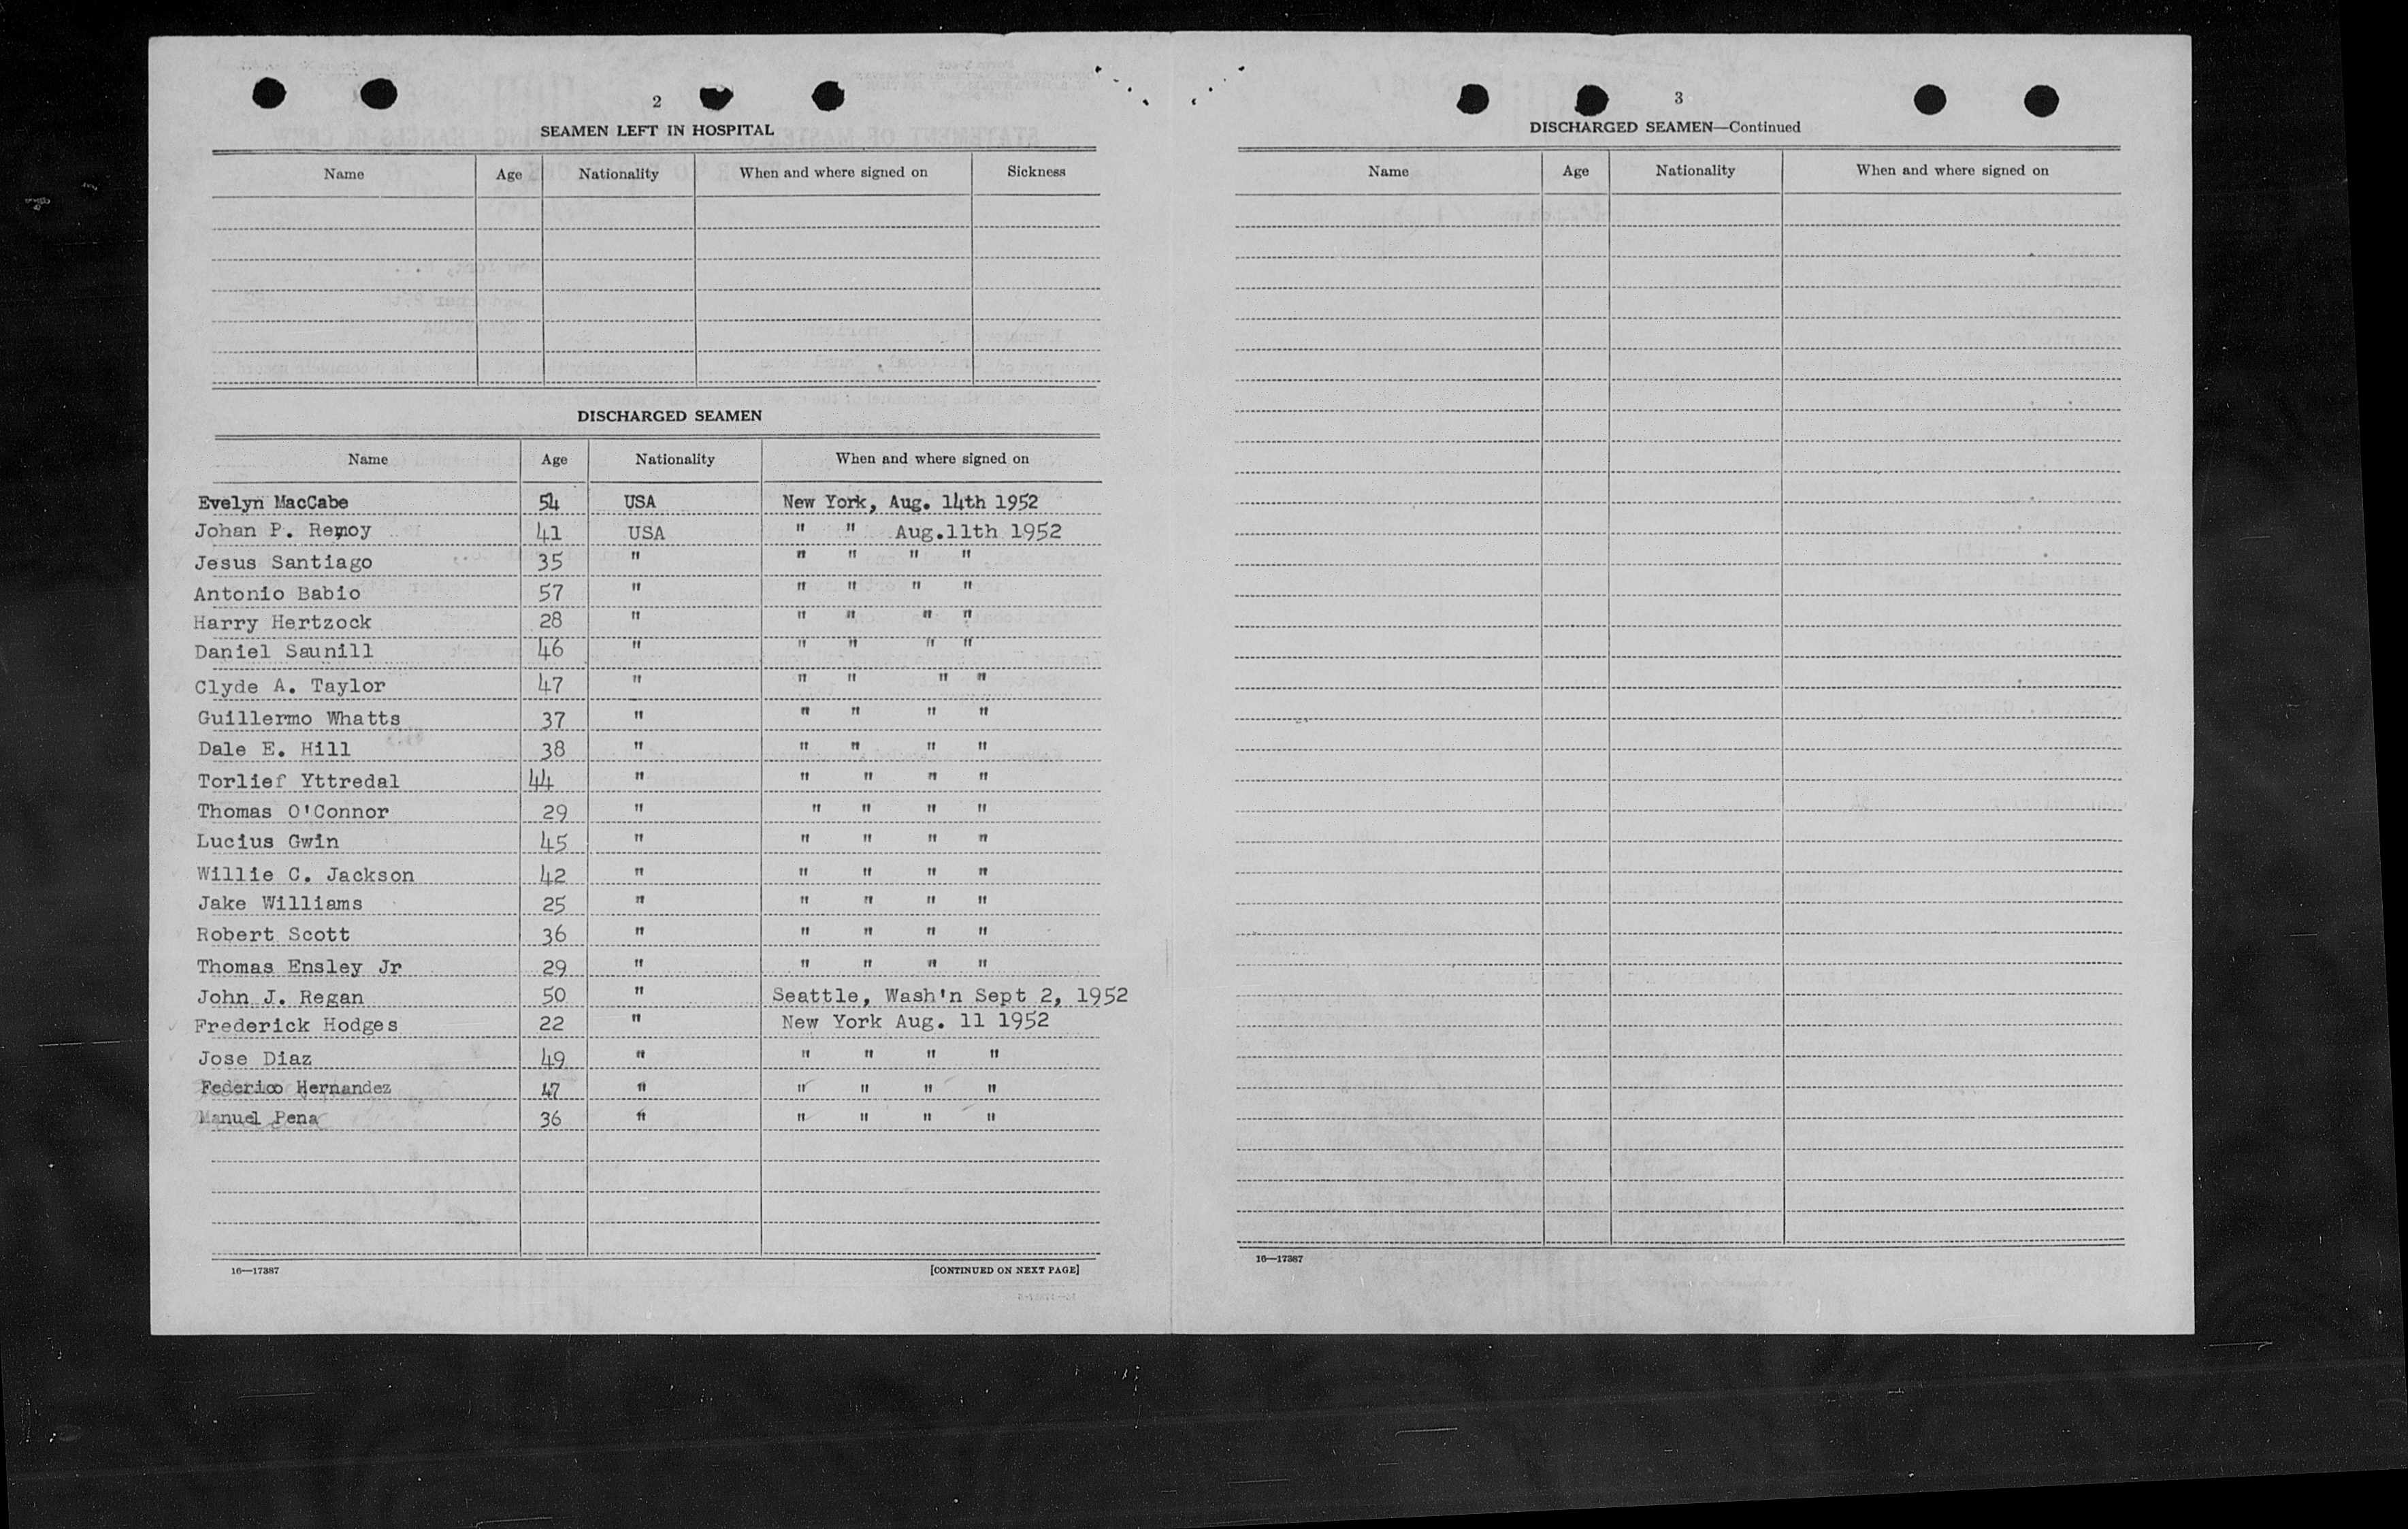 2
SEAMEN LEFT IN HOSPITAL
Name Age Nationality When and where signed on Sickness
DISCHARGED SEAMEN
Name Age Nationality When and where signed on
Evelyn MacCabe 54 USA New York, Aug. 14th 1952
Johan P. Remoy 41 USA " " Aug.11th 1952
Jesus Santiago 35 " " " " "
Antonio Babio 57 " " " " "
Harry Hertzock 28 " " " " "
Daniel Saunill 46 " " " " "
Clyde A. Taylor 47 " " " " "
Guillermo Whatts 37 " " " " "
Dale E. Hill 38 " " " " "
Torlief Yttredal 44 " " " " "
Thomas O'Connor 29 " " " " "
Lucius Gwin 45 " " " " "
Willie C. Jackson 42 " " " " "
Jake Williams 25 " " " " "
Robert Scott 36 " " " " "
Thomas Ensley Jr 29 " " " " "
John J. Regan 50 " Seattle, Wash'n Sept 2, 1952
Frederick Hodges 22 " New York Aug. 11 1952
Jose Diaz 49 " " " " "
Federico Hernandez 47 " " " " "
Manuel Pena 36 " " " " "
16—17387 [CONTINUED ON NEXT PAGE]
3
DISCHARGED SEAMEN—Continued
Name Age Nationality When and where signed on
16—17387